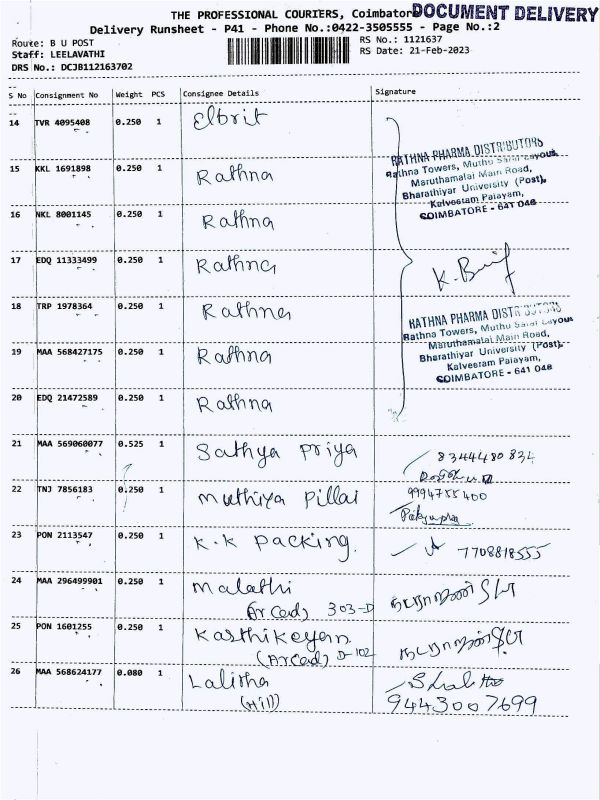 THE PROFESSIONAL COURIERS, Coimbatore DOCUMENT DELIVERY
Delivery Runsheet - P41 - Phone No.:0422-3505555 - Page No.:2
Route: B U POST
Staff: LEELAVATHI
DRS No.: DCJB112163702
RS No.: 1121637
RS Date: 21-Feb-2023
S No Consignment No Weight PCS Consignee Details Signature
14 TVR 4095408 0.250 1 Elbrit
15 KKL 1691898 0.250 1 Rathna
RATHNA PHARMA DISTRIBUTORS
Rathna Towers, Muthu Salai Layout,
Maruthamalai Main Road,
Bharathiyar University (Post),
Kalveeram Palayam,
COIMBATORE - 641 046
16 NKL 8001145 0.250 1 Rathna
17 EDQ 11333499 0.250 1 Rathna
18 TRP 1978364 0.250 1 Rathna
RATHNA PHARMA DISTRIBUTORS
Rathna Towers, Muthu Salai Layout
Maruthamalai Main Road,
Bharathiyar University (Post),
Kalveeram Palayam,
COIMBATORE - 641 046
19 MAA 568427175 0.250 1 Rathna
20 EDQ 21472589 0.250 1 Rathna
21 MAA 569060077 0.525 1 Sathya Priya 8344480834
22 TNJ 7856183 0.250 1 Muthiya Pillai 9994755400
23 PON 2113547 0.250 1 K.K Packing. 7708818555
24 MAA 296499901 0.250 1 Malathi
(Arcad) 303-D
25 PON 1601255 0.250 1 Karthikeyan
(Arcad) D-102
26 MAA 568624177 0.080 1 Lalitha
(Hill) 9443007699